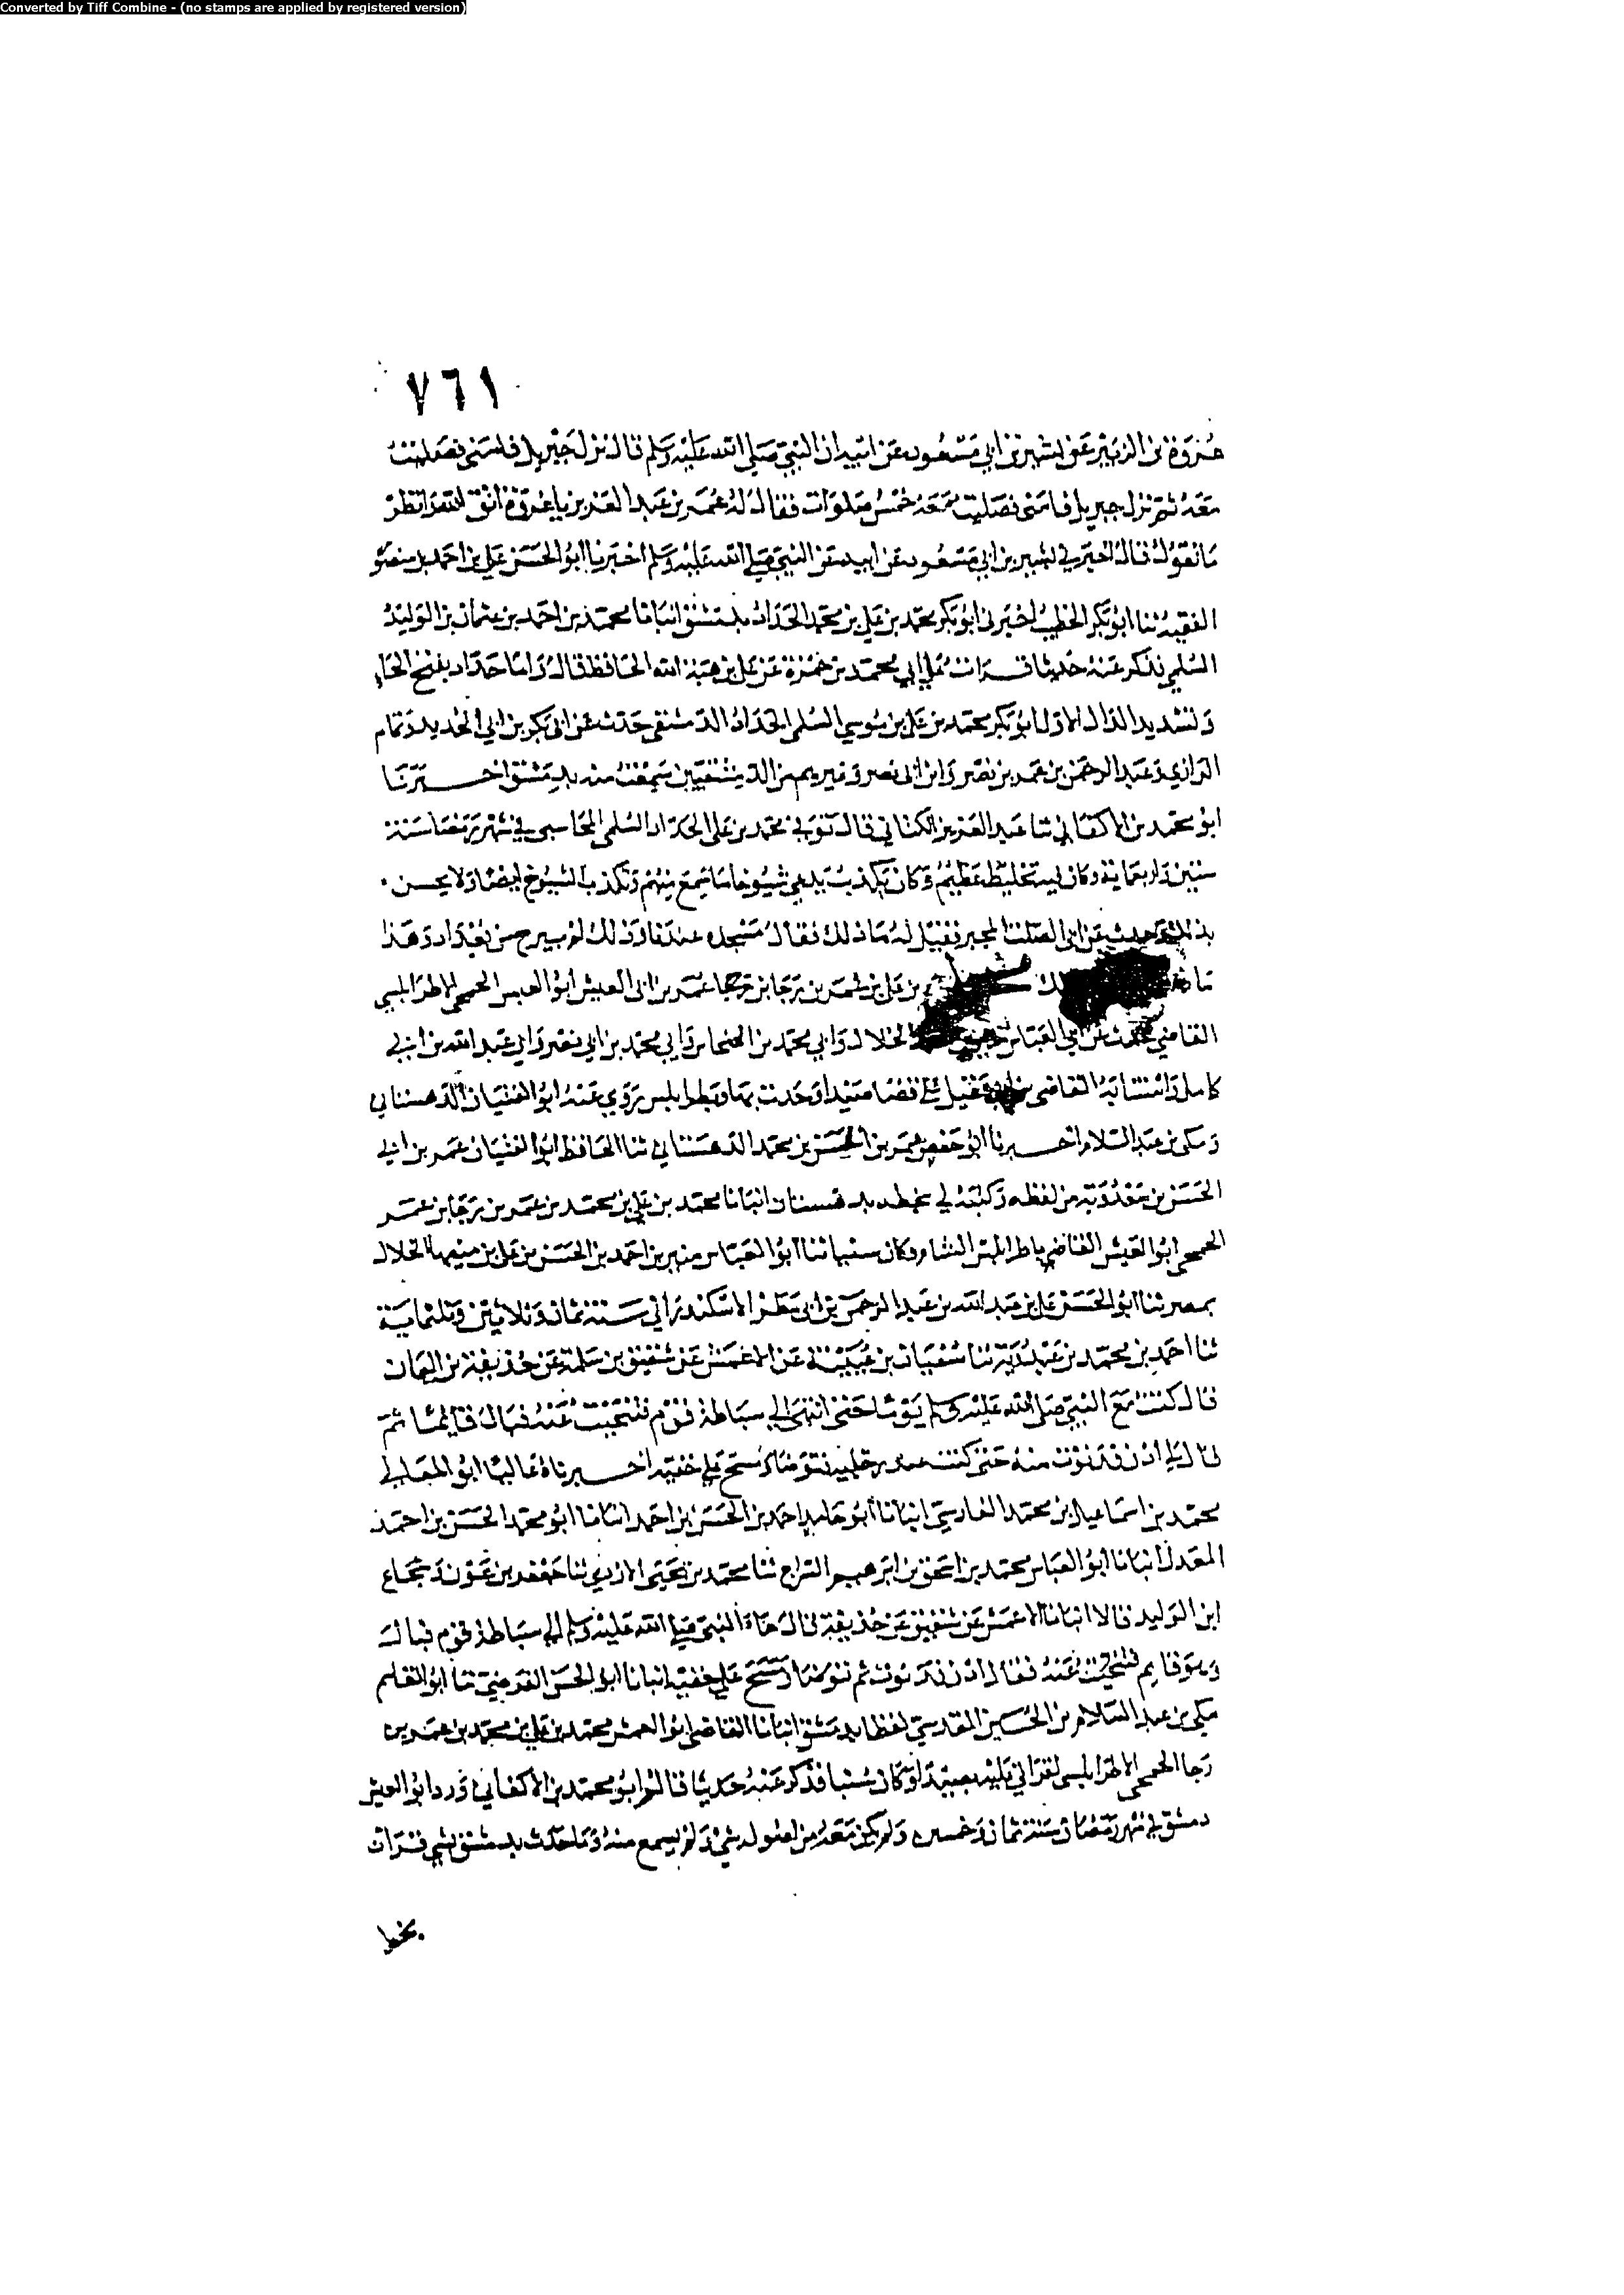 Converted by Tiff Combine - (no stamps are applied by registered version)
٧٦١
عروة بن الزبير عن بشير بن ابي مسعود عن ابيه ان النبي صلى الله عليه وسلم قال نزل جبريل فامني فصليت
معه ثم نزل جبريل فامني فصليت معه خمس صلوات فقال له عمر بن عبد العزيز يا عروة اتق الله وانظر
ما تقول قال اخبرني بشير بن ابي مسعود عن ابيه عن النبي صلى الله عليه وسلم اخبرنا ابو الحسن علي بن احمد بن منصور
الفقيه ثنا ابو بكر الخطيب اخبرني ابو بكر محمد بن علي بن محمد الحداد بدمشق انبانا محمد بن احمد بن عثمان بن الوليد
السلمي فذكر عنه حديثا قرات على ابي محمد بن حمزة عن علي بن هبة الله الحافظ قال واما حداد بفتح الحاء
وتشديد الدال الاولى ابو بكر محمد بن علي بن موسي السلمي الحداد الدمشقي حدث عن ابي بكر بن ابي الحديد وتمام
الرازي وعبد الرحمن بن عمر بن نصر وابن ابي نصر وغيرهم من الدمشقيين سمعت منه بدمشق اخبرنا
ابو محمد بن الاكفاني ثنا عبد العزيز الكتاني قال توفي محمد بن علي الحداد السلمي المحاسبي في شهر رمضان سنة
ستين واربعماية وكان فيه تخليط عظيم وكان يكذب يدعي شيوخا ما سمع منهم ويكذب الشيوخ ايضا ولا يحسن
بذلك وحدث عن ابي الصلت المجبر فقيل له ما ذلك فقال مسجل عندنا وذلك لم يبرح من بغداد وهذا
ما بن علي بن محمد بن عمر بن رجا بن عمر بن ابي العيش ابو العيش الجمحي الاطرابلسي
القاضي حدث عن ابي العباس الخلال وابي محمد بن النحاس وابي محمد بن ابي نصر وابي عبد الله بن ابي
كامل واستنابه القاضي بن ابي عقيل على قضا صيدا وحدث بها وبطرابلس روي عنه ابو الفتيان الدهستاني
ومكي بن عبد السلام اخبرنا ابو حفص عمر بن الحسن بن محمد الدهستاني ثنا الحافظ ابو الفتيان عمر بن ابي
الحسن بن سعدويه من لفظه وكتبه لي بخطه بدهستان انبانا محمد بن علي بن محمد بن عمر بن رجا بن عمر
الجمحي ابو العيش القاضي باطرابلس الشام وكان سنيا ثنا ابو العباس منير بن احمد بن الحسن بن علي بن منير الخلال
بمصر ثنا ابو الحسن علي بن عبد الله بن عبد الرحمن بن ابي مطر الاسكندراني سنة ثمان وثلاثين وثلثماية
ثنا احمد بن محمد بن عبدويه ثنا سفيان بن عيينة عن الاعمش عن شقيق بن سلمة عن حذيفة بن اليمان
قال كنت مع النبي صلى الله عليه وسلم يوما حتى انتهى الى سباطة قوم فتنحيت عنه فبال قايما ثم
قال لي ادن فدنوت منه حتى كنت عند رجليه فتوضا ومسح على خفيه اخبرناه عاليا ابو المعالي
محمد بن اسماعيل بن محمد الفارسي انبانا ابو حامد احمد بن الحسن بن احمد انبانا ابو محمد الحسن بن احمد
المعدل انبانا ابو العباس محمد بن اسحق بن ابرهيم السراج ثنا محمد بن يحيى الازدي ثنا جعفر بن عون وشجاع
ابن الوليد قالا انبانا الاعمش عن شقيق عن حذيفة قال جاء النبي صلى الله عليه وسلم الى سباطة قوم فبال
وهو قايم فتنحيت عنه فقال ادن فدنوت ثم توضا ومسح على خفيه انبانا ابو الحسن الفرضي ثنا ابو القاسم
مكي بن عبد السلام بن الحسين المقدسي لفظا بدمشق انبانا القاضي ابو العيش محمد بن علي بن محمد بن عمر بن
رجا الجمحي الاطرابلسي بقراتي عليه بصيدا وكان سنيا فذكر عنه حديثا قال لنا ابو محمد بن الاكفاني ورد ابو العيش
دمشق في شهر رمضان سنة ثمان وخمسين ولم يكن معه من اصوله شي ولم يسمع منه وما حدث بدمشق بشي قرات
بخط